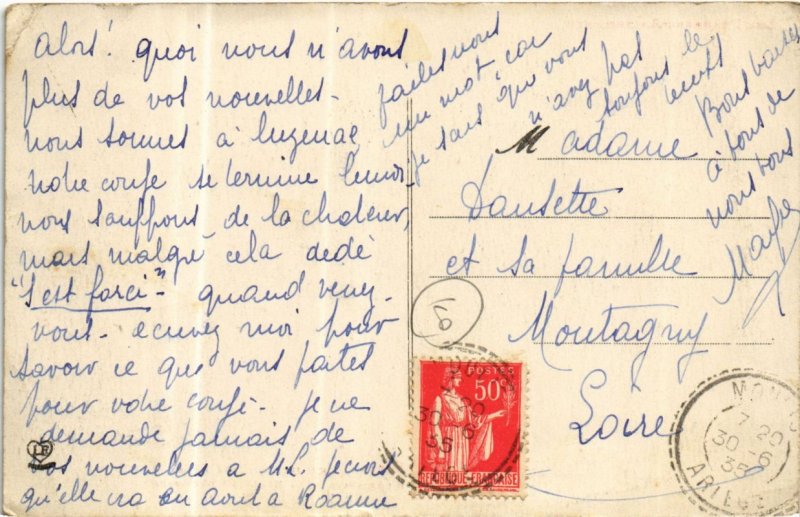 alors! quoi nous n'avons
plus de vos nouvelles -
nous sommes à Luzenac
notre congé se termine
nous souffrons de la chaleur,
mais malgré cela dédé
"s'est forci" - quand venez-
vous - écrivez moi pour
savoir ce que vous faites
pour votre congé - je ne
demande jamais de
vos nouvelles a M.L.
qu'elle va en aout a Roanne
faites nous
un mot car
je sais que vous
n'avez pas
toujours le
temps
Bons baisers
à tous de
nous tous
Madame
Dansette
et sa famille
Montagny
Loire
60
POSTES
50c
REPUBLIQUE FRANÇAISE
30
35
7 20
30-6
35
ARIEGE